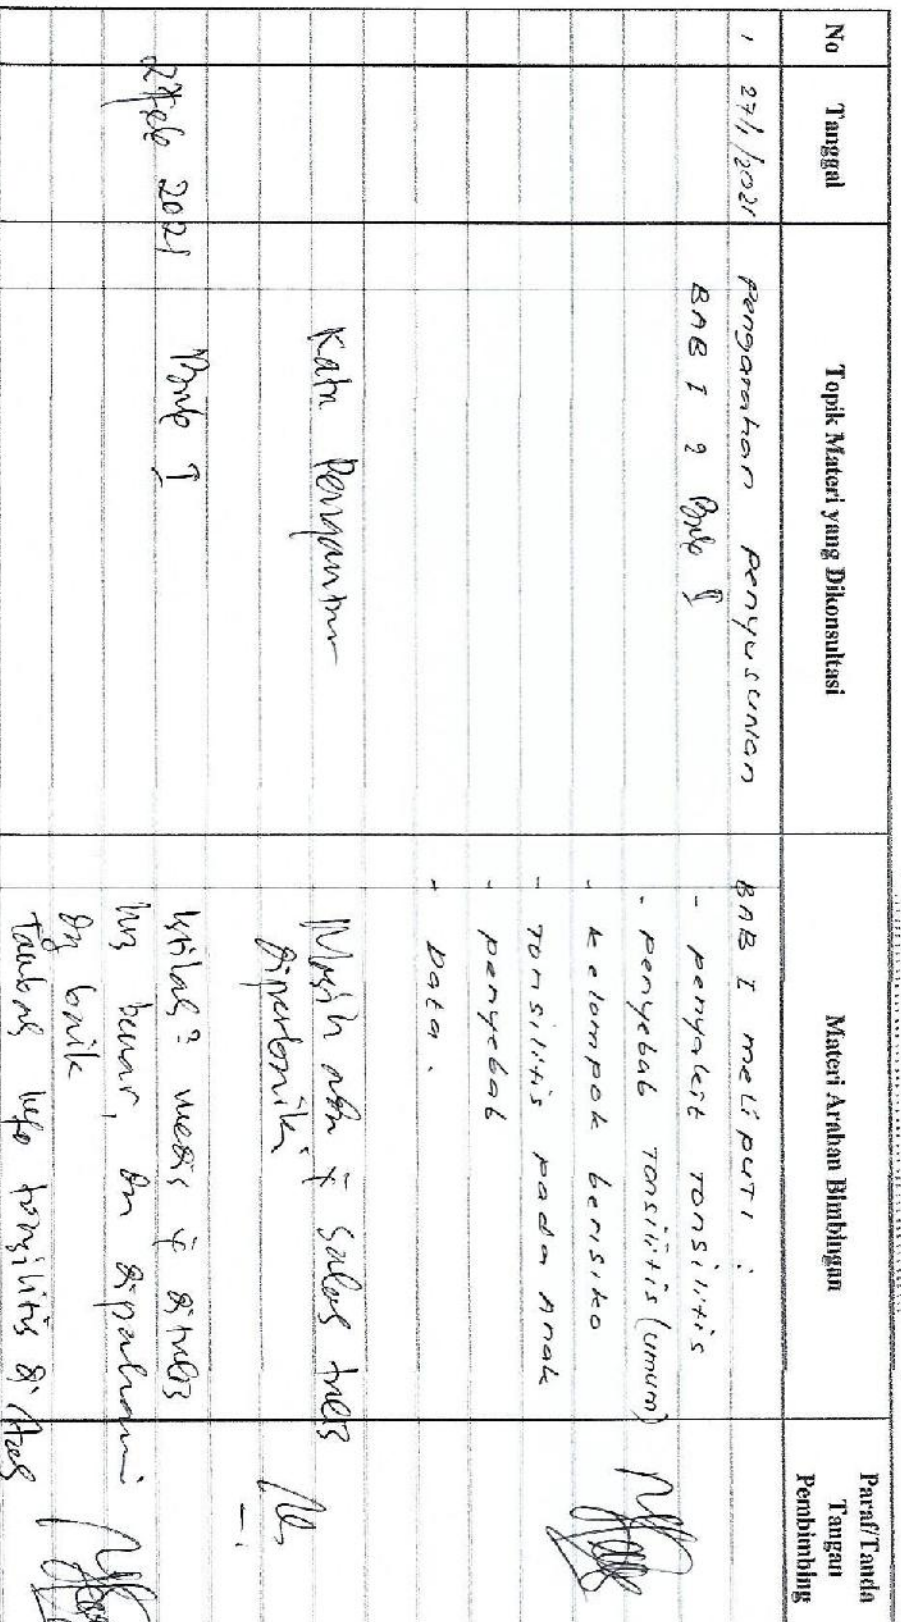 No Tanggal Topik Materi yang Dikonsultasi Materi Arahan Bimbingan Paraf/Tanda Tangan Pembimbing
1 27/1/2021 pengarahan penyusunan BAB I meliputi :
BAB I 2 Bab I - penyakit Tonsilitis
- penyebab Tonsilitis (umum)
- kelompok berisiko
- Tonsilitis pada Anak
- penyebab
- Data.
Kata Pengantar Masih ada salah tulis
diperbaiki
27 Feb 2021 Bab I Istilah2 medis ditulis
benar, dipahami
baik
info tonsilitis di